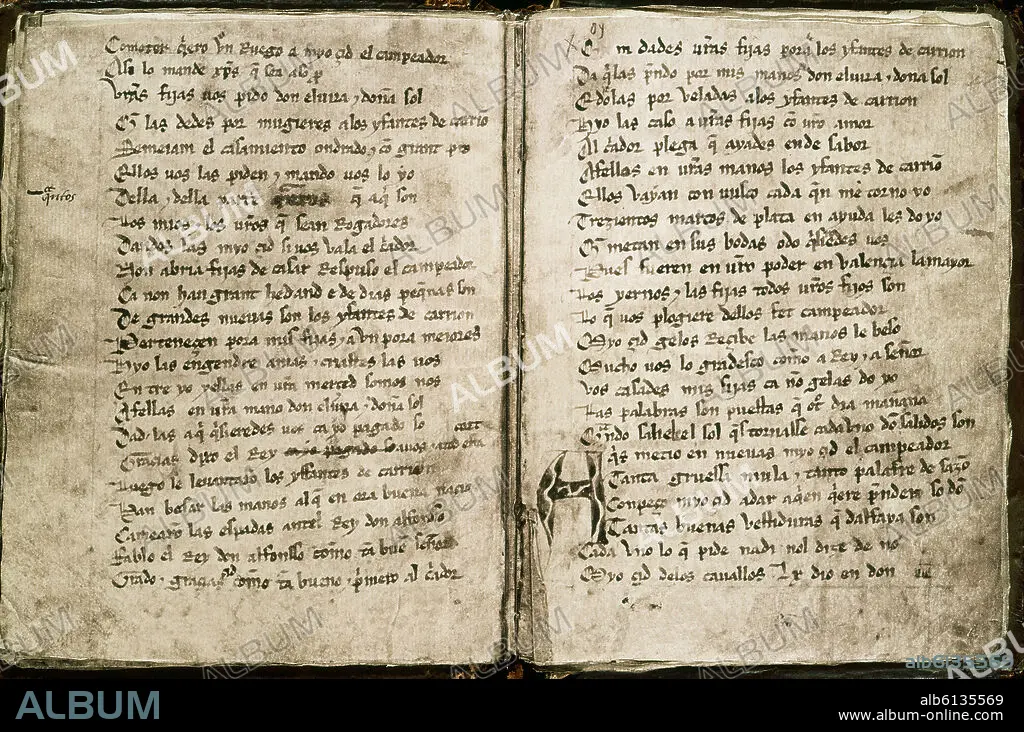 Cometer q̃ro vn Ruego a myo çid el campeador
Assi lo mande xp̃s q̃ sea a so p̃
Vr̃as fijas uos pido don eluira ⁊ doña sol
Q̃ las dedes por mugieres a los yfantes de carrio
Semeiam el casamiento ondrado ⁊ cõ grant pro
Ellos uos las piden ⁊ mando uos lo yo
Della ⁊ della part q̃ aq̃ son
Los mios ⁊ los ur̃os q̃ sean Rogadores
Dandos las myo çid si uos vala el c̃ador
Non abria fijas de casar Respuso el campeador
Ca non han grant hedand e de dias peq̃nas son
De grandes nueuas son los yfantes de carrion
Pertenecen pora mis fijas ⁊ avn pora meiores
Hyo las engendre amas ⁊ criastes las uos
Entre yo yellas en ur̃a merced somos nos
Afellas en ur̃a mano don eluira ⁊ doña sol
Dad las aq̃ q̃sieredes uos ca yo pagado so
Gracias dixo el Rey
Luego se leuantarõ los yffantes de carrion
Van besar las manos al q̃ en ora buena nacio
Camearõ las espadas antel Rey don alfonsso
Fablo el Rey don alfonsso como tã buẽ señor
Grado ⁊ gracias como tã bueno ⁊ p̃mero al c̃ador
Q̃ m dades ur̃as fijas pora los yfantes de carrion
Da q̃ las p̃ndo por mis manos don eluira ⁊ doña sol
E dolas por veladas a los yfantes de carrion
Hyo las caso a ur̃as fijas cõ ur̃o amor
Al c̃ador plega q̃ ayades ende sabor
Afellos en ur̃as manos los yfantes de carrio
Ellos vayan con uusco cada q̃n me torno yo
Trezientos marcos de plata en ayuda les do yo
Q̃ metan en sus bodas o do q̃sieredes uos
Pues fueren en ur̃o poder en valençia la mayor
Los yernos ⁊ las fijas todos ur̃os fijos son
Lo q̃ uos plogiere dellos fet campeador
Myo çid gelos Reçibe las manos le beso
Mucho uos lo gradesco como a Rey ⁊ a señor
Vos casades mis fijas ca nõ gelas do yo
Las palabras son puestas q̃ ot̃ dia mañana
Q̃ndo salie el sol q̃s tornasse cada vno dõ salidos son
Aq̃s metio en nueuas myo çid el campeador
Tanta gruessa mula ⁊ tanto palafre de sazõ
Conpeço myo çid a dar a q̃en q̃ere p̃nder so dõ
Tantas buenas vestiduras q̃ dalfaya son
Cada vno lo q̃ pide nadi nol dize de no
Myo çid de los cauallos Lx dio en don
ALBUM
alb6135569
www.album-online.com